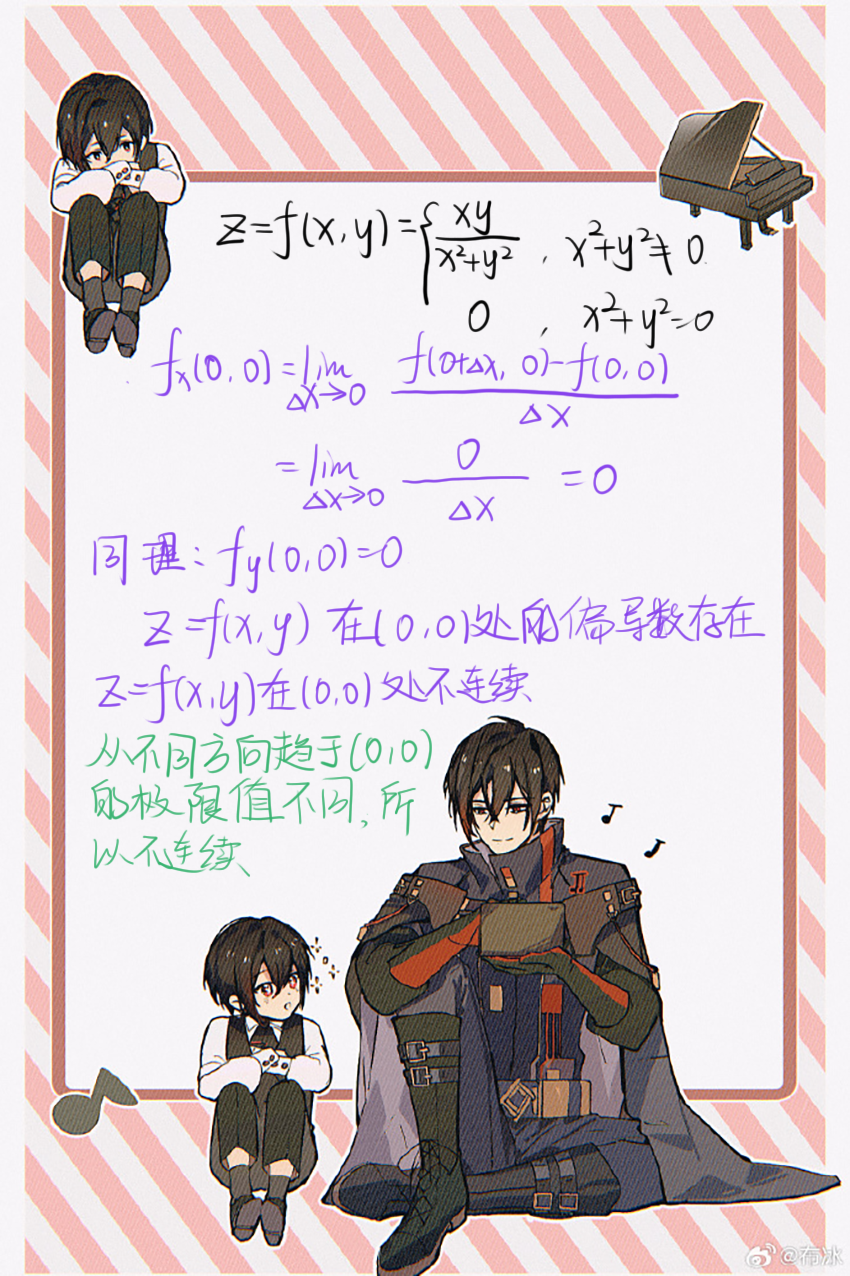 z=f(x,y)={xy/(x²+y²), x²+y²≠0
0, x²+y²=0
fx(0,0)=lim Δx→0 (f(0+Δx,0)-f(0,0))/Δx
=lim Δx→0 0/Δx =0
同理:fy(0,0)=0
z=f(x,y)在(0,0)处的偏导数存在
z=f(x,y)在(0,0)处不连续
从不同方向趋于(0,0)
的极限值不同,所
以不连续
@布冰